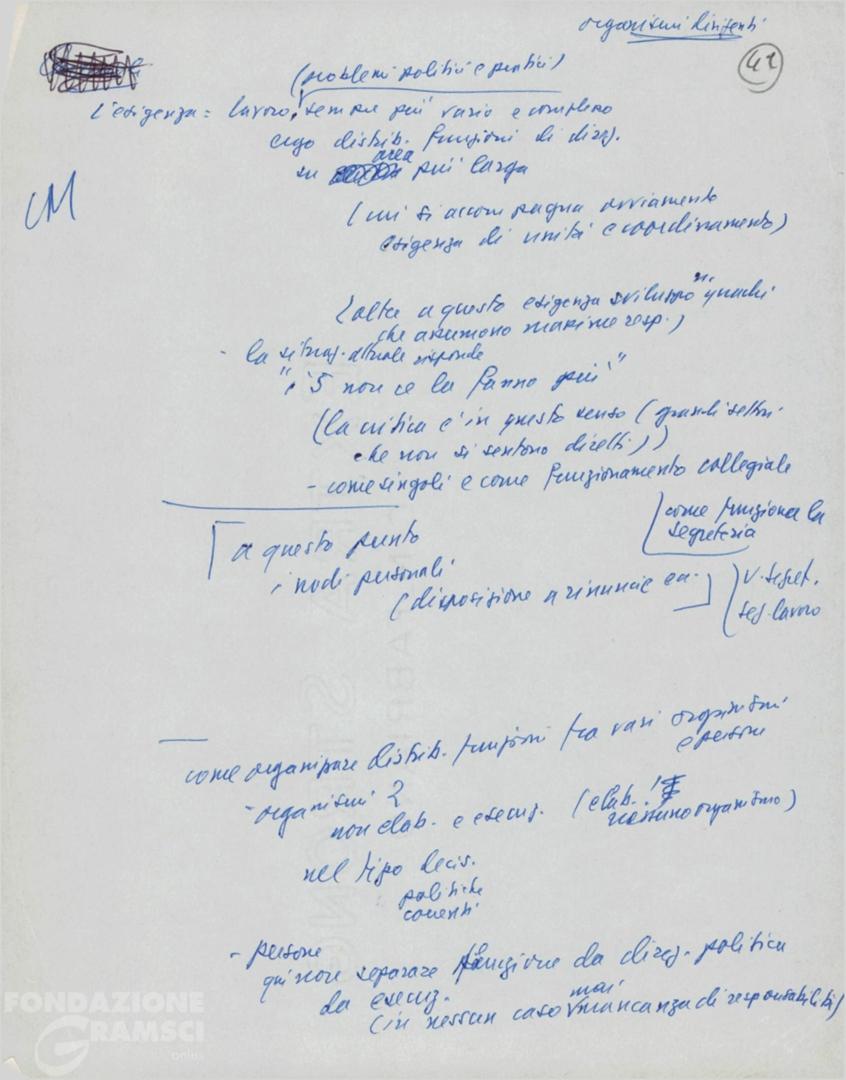 organismi dirigenti
42
(problemi politici e pratici)
L'esigenza = lavoro sempre più vario e complesso
ergo distrib. funzioni di direz.
su area più larga
(cui si accompagna ovviamente
esigenza di unità e coordinamento)
CM
(oltre a questo esigenza sviluppo n. quadri
che assumono massime resp.)
- la situaz. attuale risponde
"i 5 non ce la fanno più"
(la critica è in questo senso (grandi settori
che non si sentono diretti))
- come singoli e come funzionamento collegiale
come funziona la
segreteria
a questo punto
i nodi personali
(disposizione a rinuncie ecc.
V. segret.
seg. lavoro
come organizzare distrib. funzioni tra vari organismi
e persone
- organismi 2
non elab. e esecuz. (elab. !
nessuno organismo)
nel tipo decis.
politiche
correnti
- persone
qui non separare funzione da direz. politica
da esecuz.
(in nessun caso mai mancanza di responsabilità)
FONDAZIONE
GRAMSCI
onlus